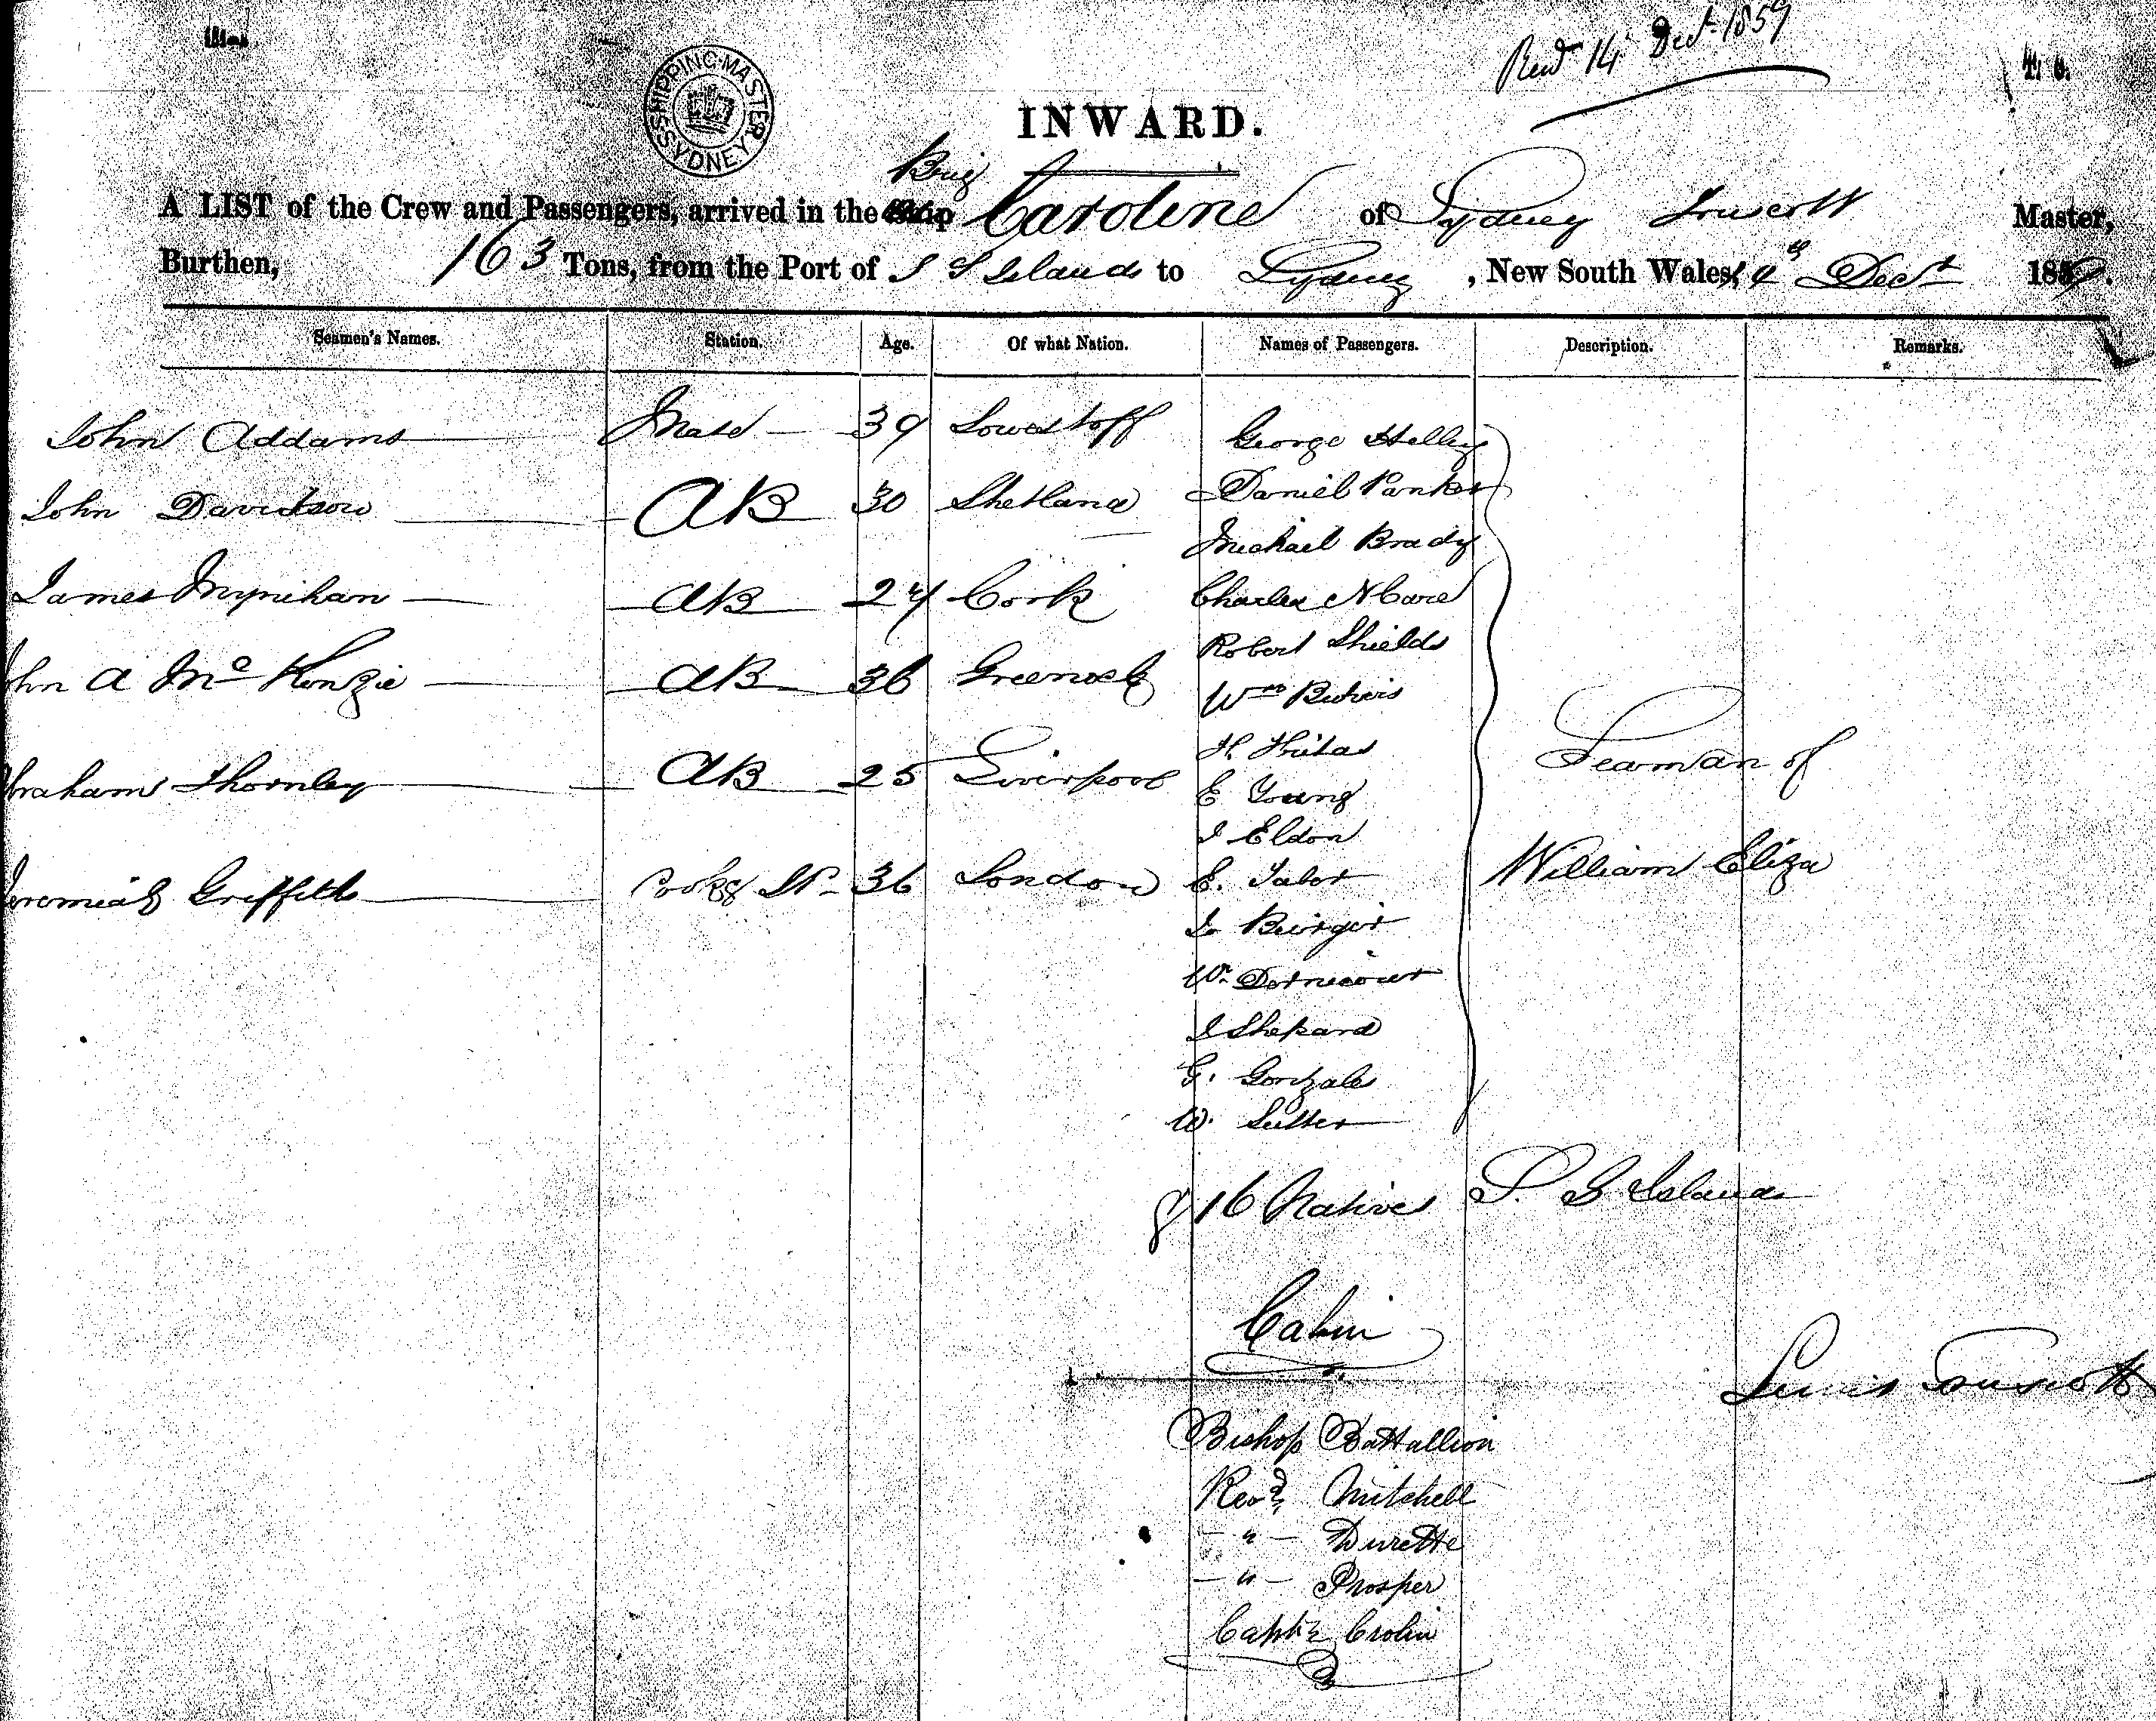 Recd 14 Dect 1859
SHIPPING MASTER SYDNEY
INWARD.
Brig
A LIST of the Crew and Passengers, arrived in the Ship Caroline of Sydney Truscott Master,
Burthen, 163 Tons, from the Port of S S Islands to Sydney, New South Wales, Decr 1859.
Seamen's Names. Station. Age. Of what Nation. Names of Passengers. Description. Remarks.
John Addams Mate 39 Lowestoff
John Davidson AB 30 Shetland
James Mynihan AB 24 Cork
John A McKenzie AB 36 Greenock
Abraham Thornley AB 25 Liverpool
Jeremiah Griffiths Cook & St 36 London
George Helley
Daniel Parker
Michael Brady
Charles
Robert Shields
Wm
H.
E Young
J Eldon
E. Tabor
W.
J Shepard
G. Gonzales
W. Sutter
Seaman of
William Eliza
& 16 Natives S. S Islands
Cabin
Lewis Truscott
Bishop Battallion
Revd Mitchell
- " - Durette
- " - Prosper
Captn Crolin